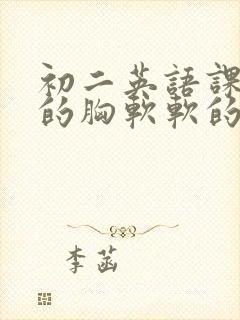 初二英語課
的胸軟軟的
李菡